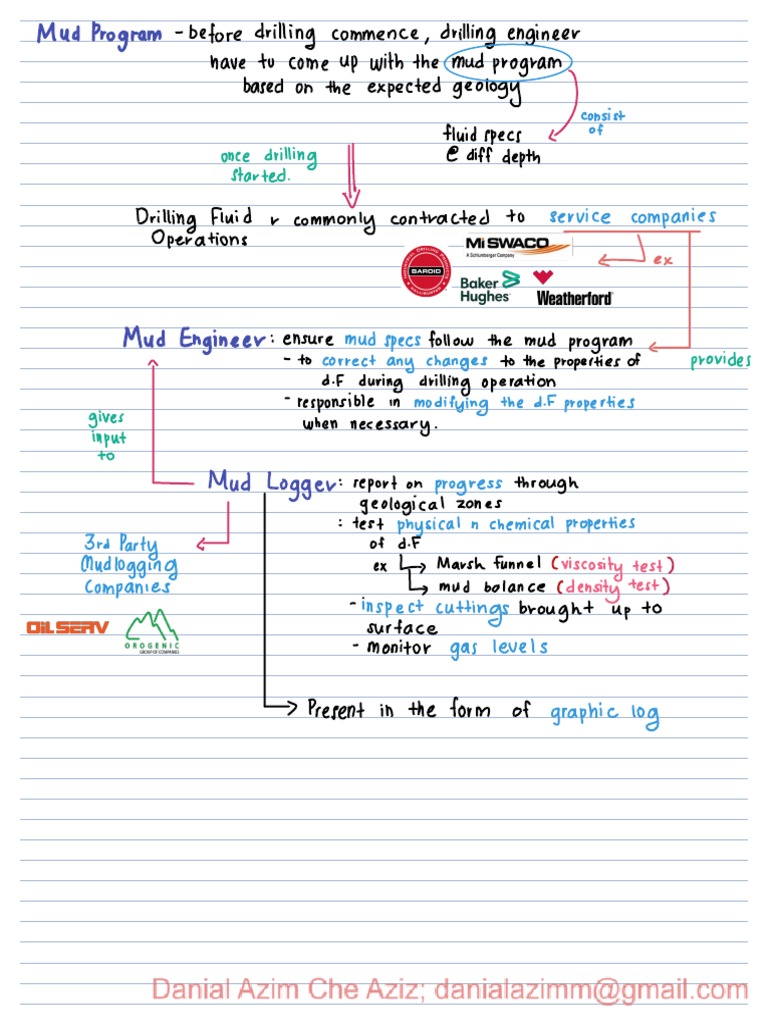 Mud Program - before drilling commence, drilling engineer
have to come up with the mud program
based on the expected geology
consist
of
fluid specs
@ diff depth
once drilling
started.
Drilling Fluid r commonly contracted to service companies
Operations
ex
BAROID
Mi SWACO
A Schlumberger Company
Baker
Hughes
Weatherford
Mud Engineer: ensure mud specs follow the mud program
provides
- to correct any changes to the properties of
d.F during drilling operation
- responsible in modifying the d.F properties
when necessary.
gives
input
to
Mud Logger: report on progress through
geological zones
: test physical n chemical properties
of d.F
ex Marsh funnel (viscosity test)
mud balance (density test)
- inspect cuttings brought up to
surface
- monitor gas levels
3rd Party
Mudlogging
Companies
OILSERV
OROGENIC
GROUP OF COMPANIES
Present in the form of graphic log
Danial Azim Che Aziz; danialazimm@gmail.com